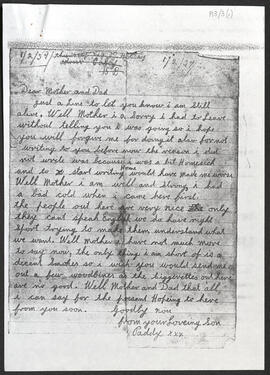 1/2/37
1/2/37
Dear Mother and Dad
Just a Line to let you know i am still
alive, Well Mother i a Sorry i had to Leave
without telling you i was going so i hope
you will forgive me for doing it also for not
writing to you before now the reason i did
not write was because i was a bit Homesick
and to start writing Home would have made me worse
Well Mother i am well and strong i had
a bad cold when i came here first.
the people out here are very nice the only
they cant speak English we do have right
sport trying to make them understand what
we want. Well Mother i have not much more
to say now, the only thing i am short of is a
decent smoke so i wish you would send me
out a few woodbines as the ciggerettes out here
are no good. Well Mother and Dad that all
i can say for the present Hopeing to have
from you soon.
Goodby You
from your Loveing Son
Paddy xxx